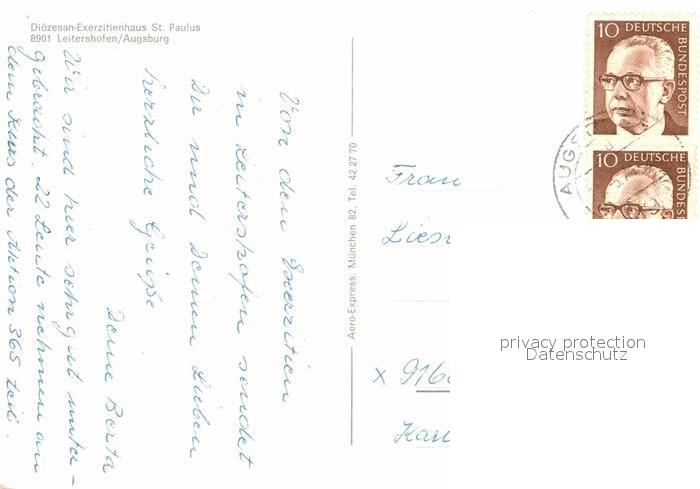 Diözesan-Exerzitienhaus St. Paulus
8901 Leitershofen/Augsburg
Von den Exerzitien
in Leitershofen sendet
Dir und Deinen Lieben
herzliche Grüße
Deine Berta
Wir sind hier sehr gut unter-
gebracht. 22 Leute nehmen an
dem Kurs der Aktion 365 teil.
Aero-Express, München 82, Tel. 42 27 70
10 DEUTSCHE
BUNDESPOST
10 DEUTSCHE
BUNDES
AUGS
Frau
Lies
x 916
privacy protection
Datenschutz